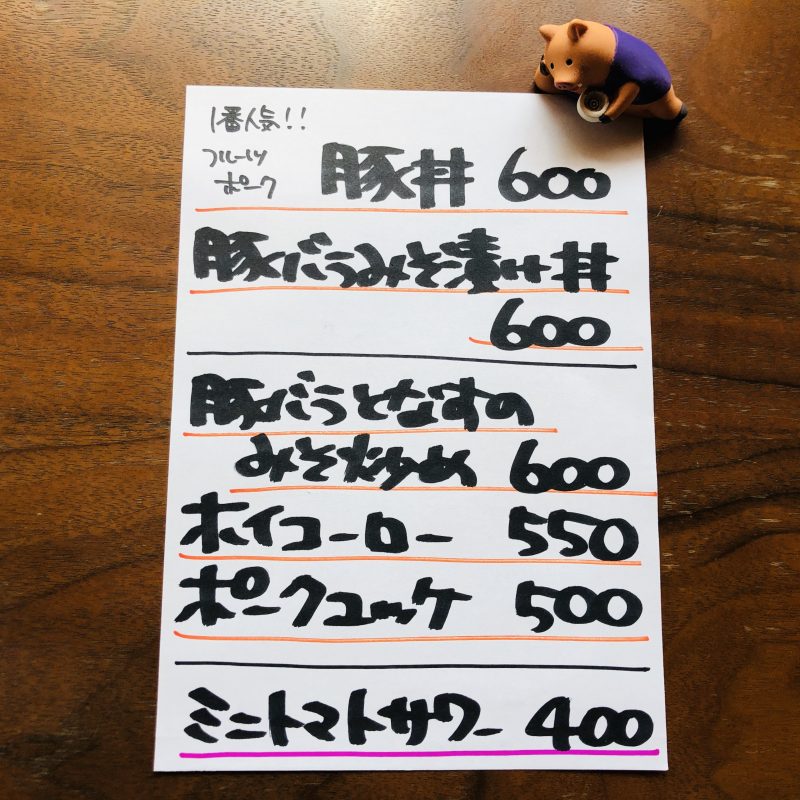 1番人気!!
フルーツ
ポーク
豚丼 600
豚バラみそ漬け丼
600
豚バラとなすの
みそ炒め 600
ホイコーロー 550
ポークユッケ 500
ミニトマトサワー 400